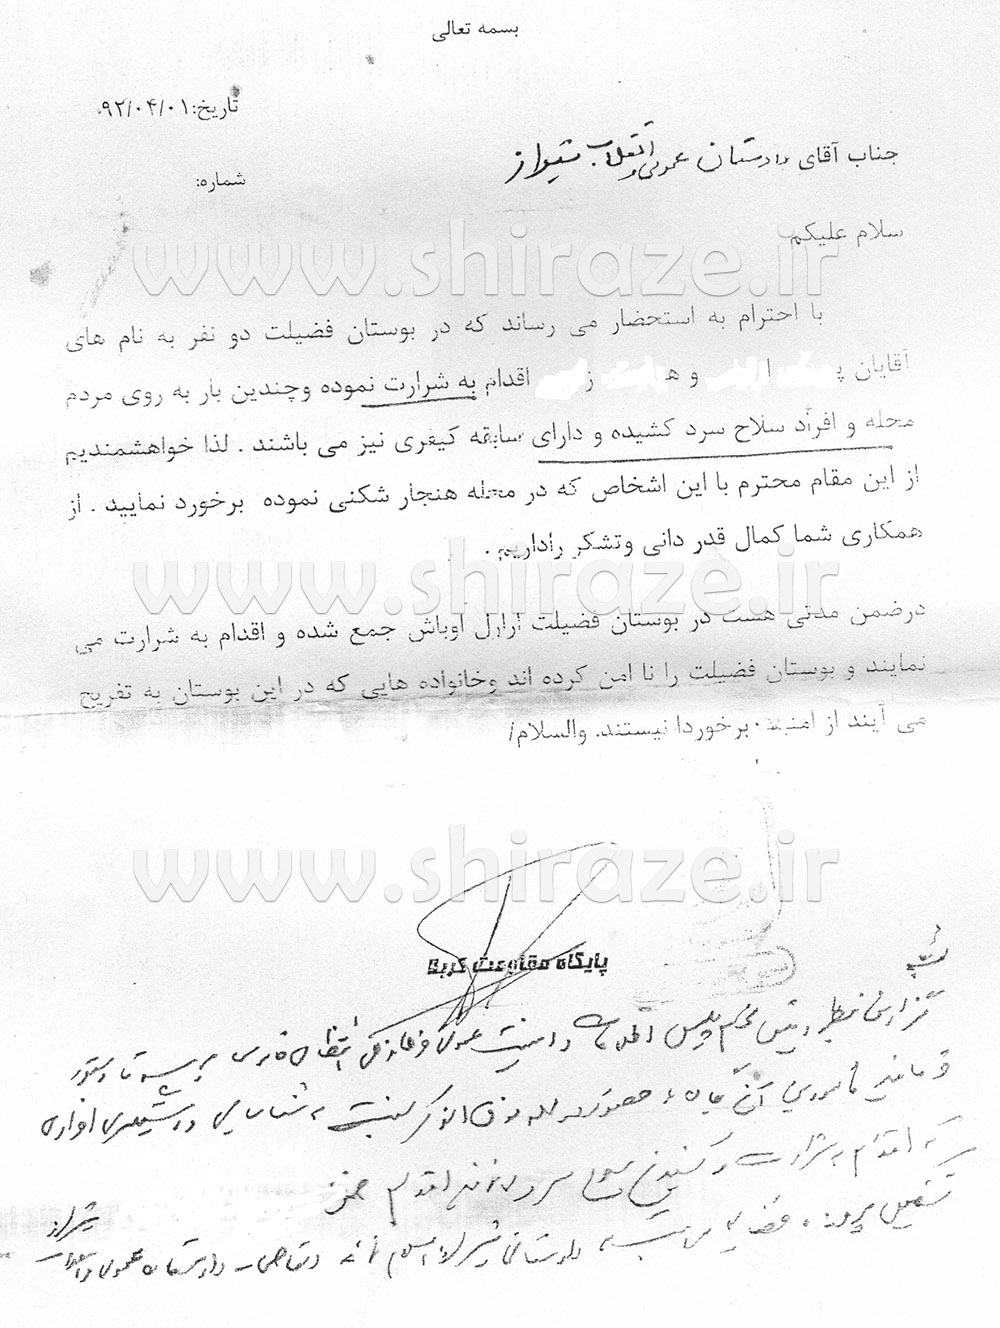 بسمه تعالی
تاریخ: ۹۲/۰۴/۰۱
جناب آقای دادستان عمومی و انقلاب شیراز
شماره:
سلام علیکم
www.shiraze.ir
با احترام به استحضار می رساند که در بوستان فضیلت دو نفر به نام های
آقایان پ ا و ه ز اقدام به شرارت نموده وچندین بار به روی مردم
محله و افراد سلاح سرد کشیده و دارای سابقه کیفری نیز می باشند . لذا خواهشمندیم
از این مقام محترم با این اشخاص که در محله هنجار شکنی نموده برخورد نمایید . از
همکاری شما کمال قدر دانی وتشکر راداریم .
www.shiraze.ir
درضمن مدتی هست در بوستان فضیلت ارازل اوباش جمع شده و اقدام به شرارت می
نمایند و بوستان فضیلت را نا امن کرده اند وخانواده هایی که در این بوستان به تفریح
می آیند از امنیت برخوردا نیستند. والسلام/
www.shiraze.ir
پایگاه مقاومت کربلا
رئیس محترم پلیس اطلاعات و امنیت عمومی فرماندهی انتظامی فارس تا دستور
فرمائید مامورین آن با حضور در محله فوق الذکر نسبت به شناسایی و دستگیری افرادی
که اقدام به شرارت و کشیدن سلاح سرد اقدام
تشکیل پرونده قضایی دادستانی شیراز دادستان عمومی و انقلاب شیراز